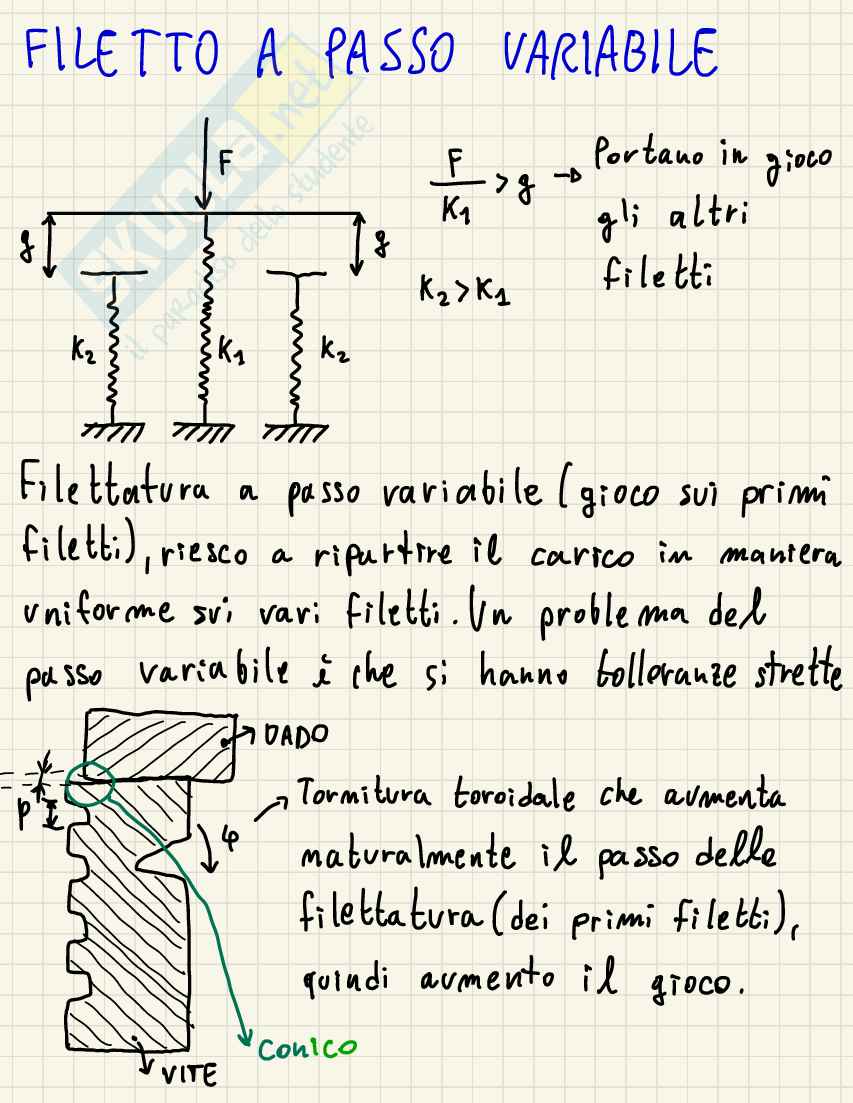 FILETTO A PASSO VARIABILE
SKUOLA.net
il paradiso dello studente
F
g
g
K2
K1
K2
F
K1
> g → Portano in gioco
gli altri
filetti
K2 > K1
Filettatura a passo variabile (gioco sui primi
filetti), riesco a ripartire il carico in maniera
uniforme sui vari filetti. Un problema del
passo variabile è che si hanno tolleranze strette
DADO
P
φ
Tornitura toroidale che aumenta
naturalmente il passo delle
filettatura (dei primi filetti),
quindi aumento il gioco.
CONICO
VITE